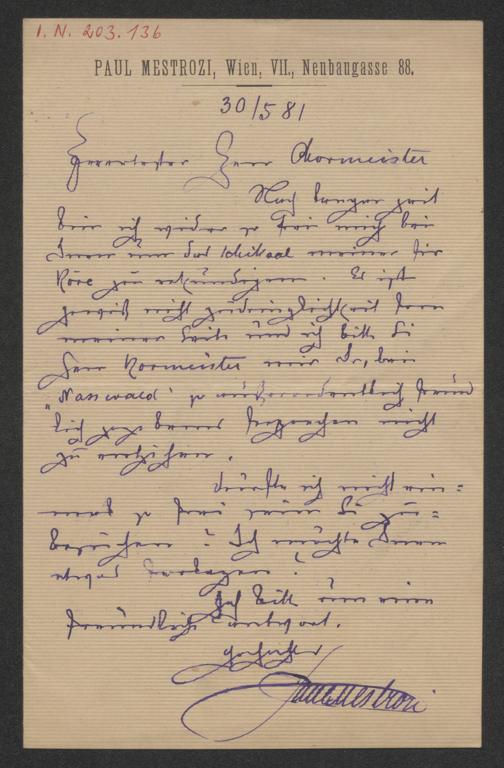 I. N. 203.136
PAUL MESTROZI, Wien, VII., Neubaugasse 88.
30/5 81
Geeerter Herr Chormeister
Nach langer zeit
bin ich wider so frei mich bei
Inen um das schiksal meiner
Köre zu erkundigen. Es ist
gewiß nicht zudringlichkeit von
meiner Seite und ich bitte Si
Herr Kormeister mir Ir, bei
"Nasswald" so außerordentlich freund
lich gegebenes Versprechen nicht
zu
Dürfte ich nicht ein=
mal so frei sein Si zu=
besuchen? Ich möchte Inen
etwas vorlegen!
Ich bitte um eine
freundliche antwort.
Paul Mestrozi